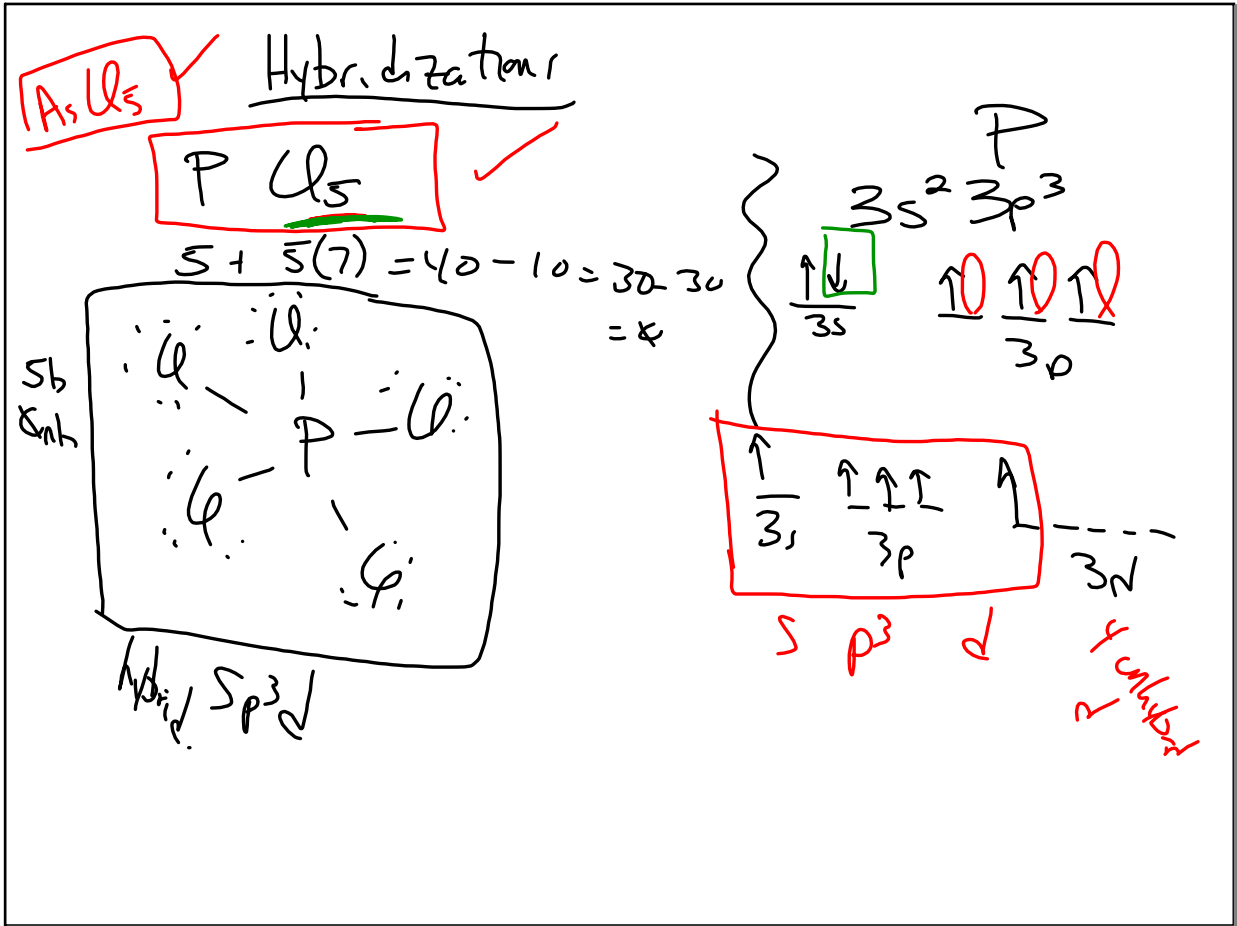 AsCl5
Hybridizations
P Cl5
5 + 5(7) = 40 - 10 = 30 - 30
Cl
Cl
P
Cl
Cl
Cl
5b
hybrid. sp³d
P
3s² 3p³
↑↓ ↑ ↑ ↑
3s 3p
↑ ↑ ↑ ↑ ↑
3s 3p 3d
s p³ d
4 unhybrid